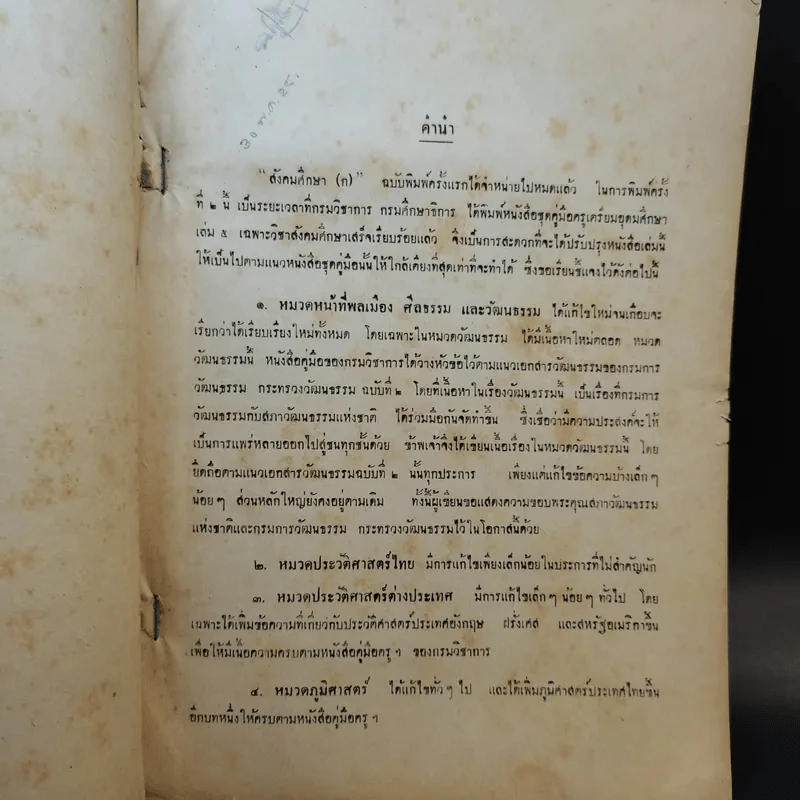 ๓๐ พ.ค. ๒๕.
คำนำ
"สังคมศึกษา (ก)" ฉบับพิมพ์ครั้งแรกได้จำหน่ายไปหมดแล้ว ในการพิมพ์ครั้ง
ที่ ๒ นี้ เป็นระยะเวลาที่กรมวิชาการ กรมศึกษาธิการ ได้พิมพ์หนังสือชุดคู่มือครูเตรียมอุดมศึกษา
เล่ม ๕ เฉพาะวิชาสังคมศึกษาเสร็จเรียบร้อยแล้ว จึงเป็นการสะดวกที่จะได้ปรับปรุงหนังสือเล่มนี้
ให้เป็นไปตามแนวหนังสือชุดคู่มือนั้นให้ใกล้เคียงที่สุดเท่าที่จะทำได้ ซึ่งขอเรียนชี้แจงไว้ดังต่อไปนี้
๑. หมวดหน้าที่พลเมือง ศีลธรรม และวัฒนธรรม ได้แก้ไขใหม่จนเกือบจะ
เรียกว่าได้เรียบเรียงใหม่ทั้งหมด โดยเฉพาะในหมวดวัฒนธรรม ได้มีเนื้อหาใหม่ตลอด หมวด
วัฒนธรรมนี้ หนังสือคู่มือของกรมวิชาการได้วางหัวข้อไว้ตามแนวเอกสารวัฒนธรรมของกรมการ
วัฒนธรรม กระทรวงวัฒนธรรม ฉบับที่ ๒ โดยที่เนื้อหาในเรื่องวัฒนธรรมนี้ เป็นเรื่องที่กรมการ
วัฒนธรรมกับสภาวัฒนธรรมแห่งชาติ ได้ร่วมมือกันจัดทำขึ้น ซึ่งเชื่อว่ามีความประสงค์จะให้
เป็นการแพร่หลายออกไปสู่ชนทุกชั้นด้วย ข้าพเจ้าจึงได้เขียนเนื้อเรื่องในหมวดวัฒนธรรมนี้ โดย
ยึดถือตามแนวเอกสารวัฒนธรรมฉบับที่ ๒ นั้นทุกประการ เพียงแต่แก้ไขข้อความบ้างเล็ก ๆ
น้อย ๆ ส่วนหลักใหญ่ยังคงอยู่ตามเดิม ทั้งนี้ผู้เขียนขอแสดงความขอบพระคุณสภาวัฒนธรรม
แห่งชาติและกรมการวัฒนธรรม กระทรวงวัฒนธรรมไว้ในโอกาสนี้ด้วย
๒. หมวดประวัติศาสตร์ไทย มีการแก้ไขเพียงเล็กน้อยในประการที่ไม่สำคัญนัก
๓. หมวดประวัติศาสตร์ต่างประเทศ มีการแก้ไขเล็ก ๆ น้อย ๆ ทั่วไป โดย
เฉพาะได้เพิ่มข้อความที่เกี่ยวกับประวัติศาสตร์ประเทศอังกฤษ ฝรั่งเศส และสหรัฐอเมริกาขึ้น
เพื่อให้มีเนื้อความครบตามหนังสือคู่มือครู ฯ ของกรมวิชาการ
๔. หมวดภูมิศาสตร์ ได้แก้ไขทั่ว ๆ ไป และได้เพิ่มภูมิศาสตร์ประเทศไทยขึ้น
อีกบทหนึ่งให้ครบตามหนังสือคู่มือครู ฯ